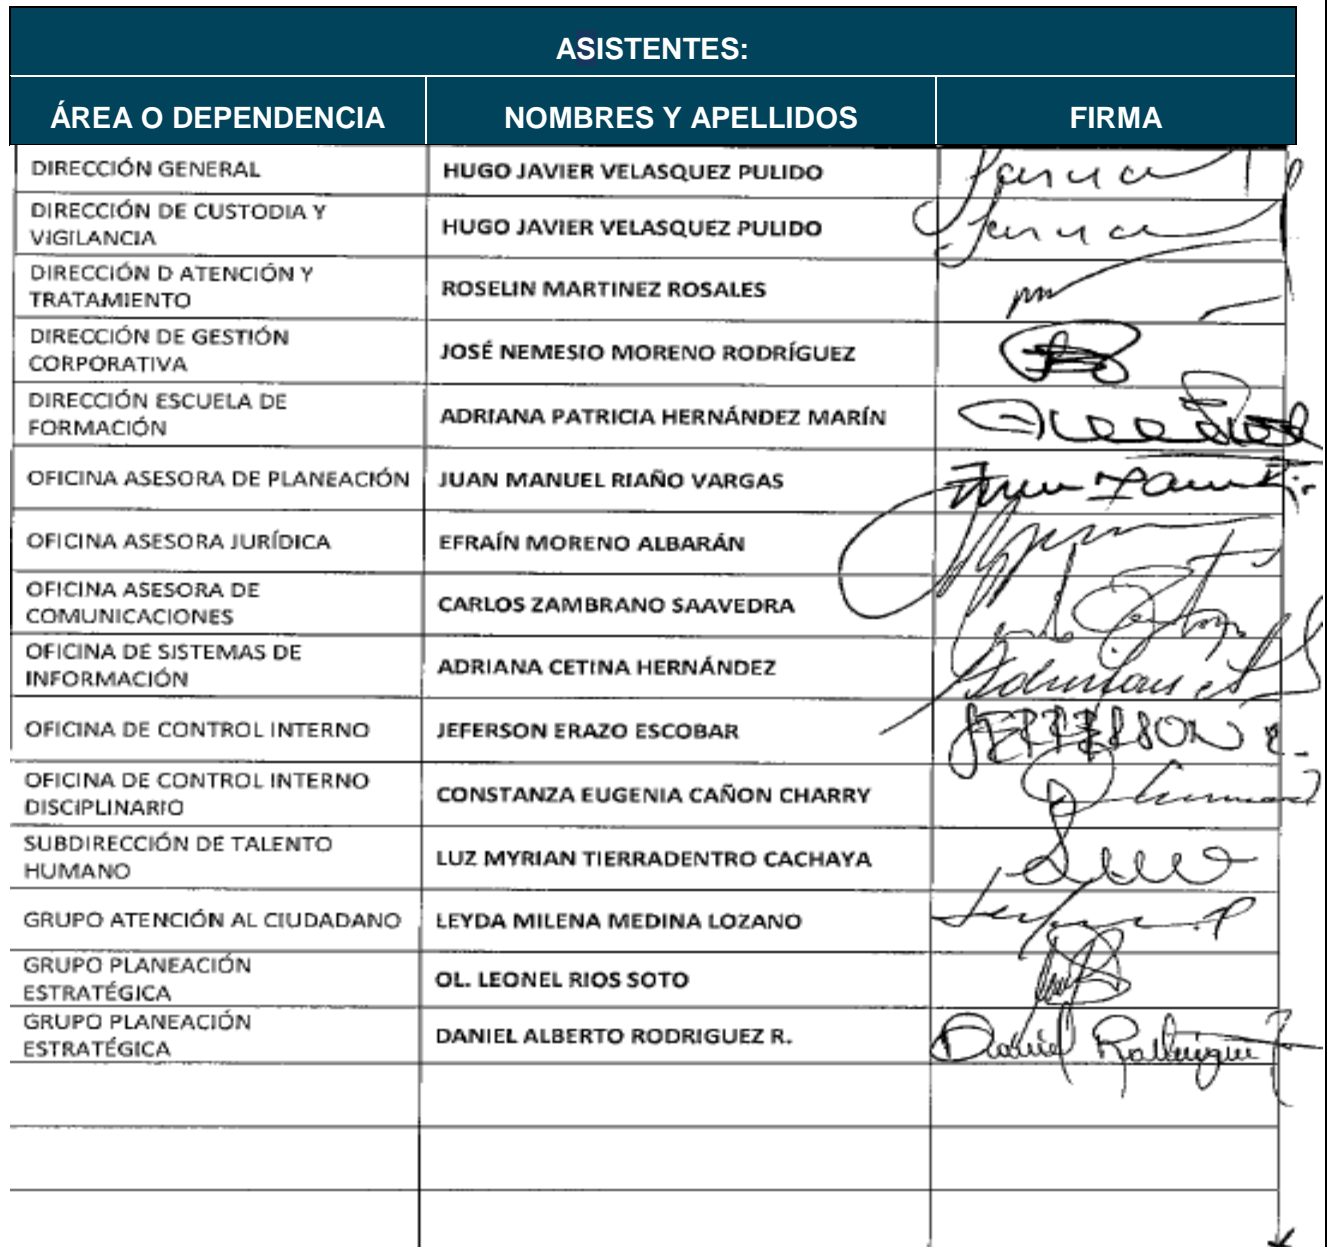 ASISTENTES:
ÁREA O DEPENDENCIA NOMBRES Y APELLIDOS FIRMA
DIRECCIÓN GENERAL HUGO JAVIER VELASQUEZ PULIDO
DIRECCIÓN DE CUSTODIA Y
VIGILANCIA HUGO JAVIER VELASQUEZ PULIDO
DIRECCIÓN D ATENCIÓN Y
TRATAMIENTO ROSELIN MARTINEZ ROSALES
DIRECCIÓN DE GESTIÓN
CORPORATIVA JOSÉ NEMESIO MORENO RODRÍGUEZ
DIRECCIÓN ESCUELA DE
FORMACIÓN ADRIANA PATRICIA HERNÁNDEZ MARÍN
OFICINA ASESORA DE PLANEACIÓN JUAN MANUEL RIAÑO VARGAS
OFICINA ASESORA JURÍDICA EFRAÍN MORENO ALBARÁN
OFICINA ASESORA DE
COMUNICACIONES CARLOS ZAMBRANO SAAVEDRA
OFICINA DE SISTEMAS DE
INFORMACIÓN ADRIANA CETINA HERNÁNDEZ
OFICINA DE CONTROL INTERNO JEFERSON ERAZO ESCOBAR JEFFERSON E.
OFICINA DE CONTROL INTERNO
DISCIPLINARIO CONSTANZA EUGENIA CAÑON CHARRY
SUBDIRECCIÓN DE TALENTO
HUMANO LUZ MYRIAN TIERRADENTRO CACHAYA
GRUPO ATENCIÓN AL CIUDADANO LEYDA MILENA MEDINA LOZANO
GRUPO PLANEACIÓN
ESTRATÉGICA OL. LEONEL RIOS SOTO
GRUPO PLANEACIÓN
ESTRATÉGICA DANIEL ALBERTO RODRIGUEZ R. Daniel Rodriguez R